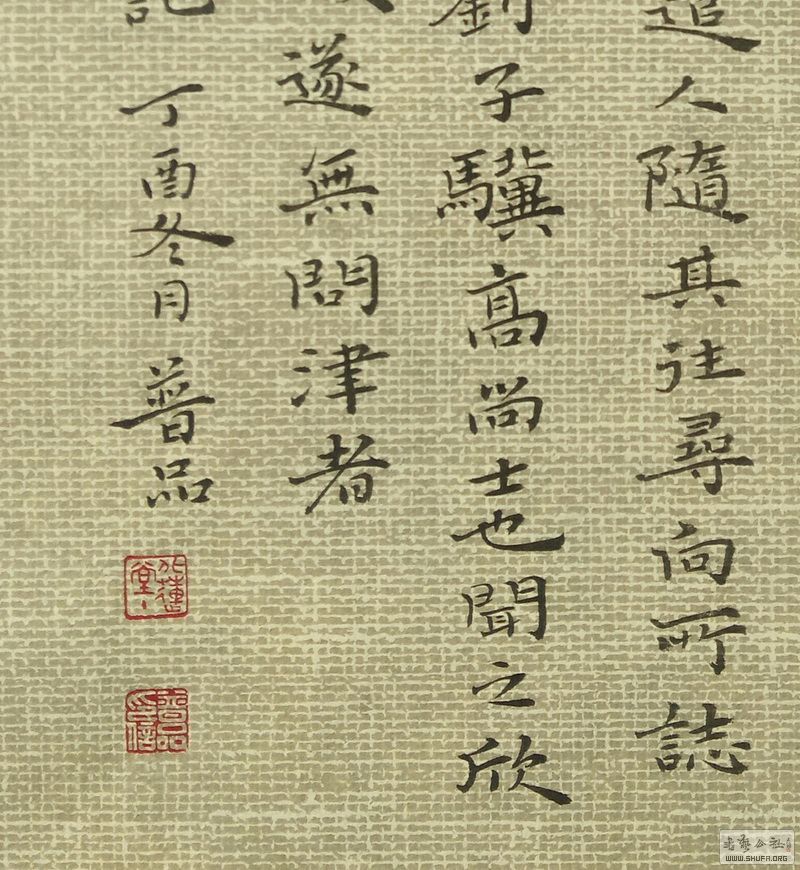 遣人隨其往尋向所誌
劉子驥高尚士也聞之欣
遂無問津者
記丁酉冬月普品
普品印信
书法公社
WWW.SHUFA.ORG